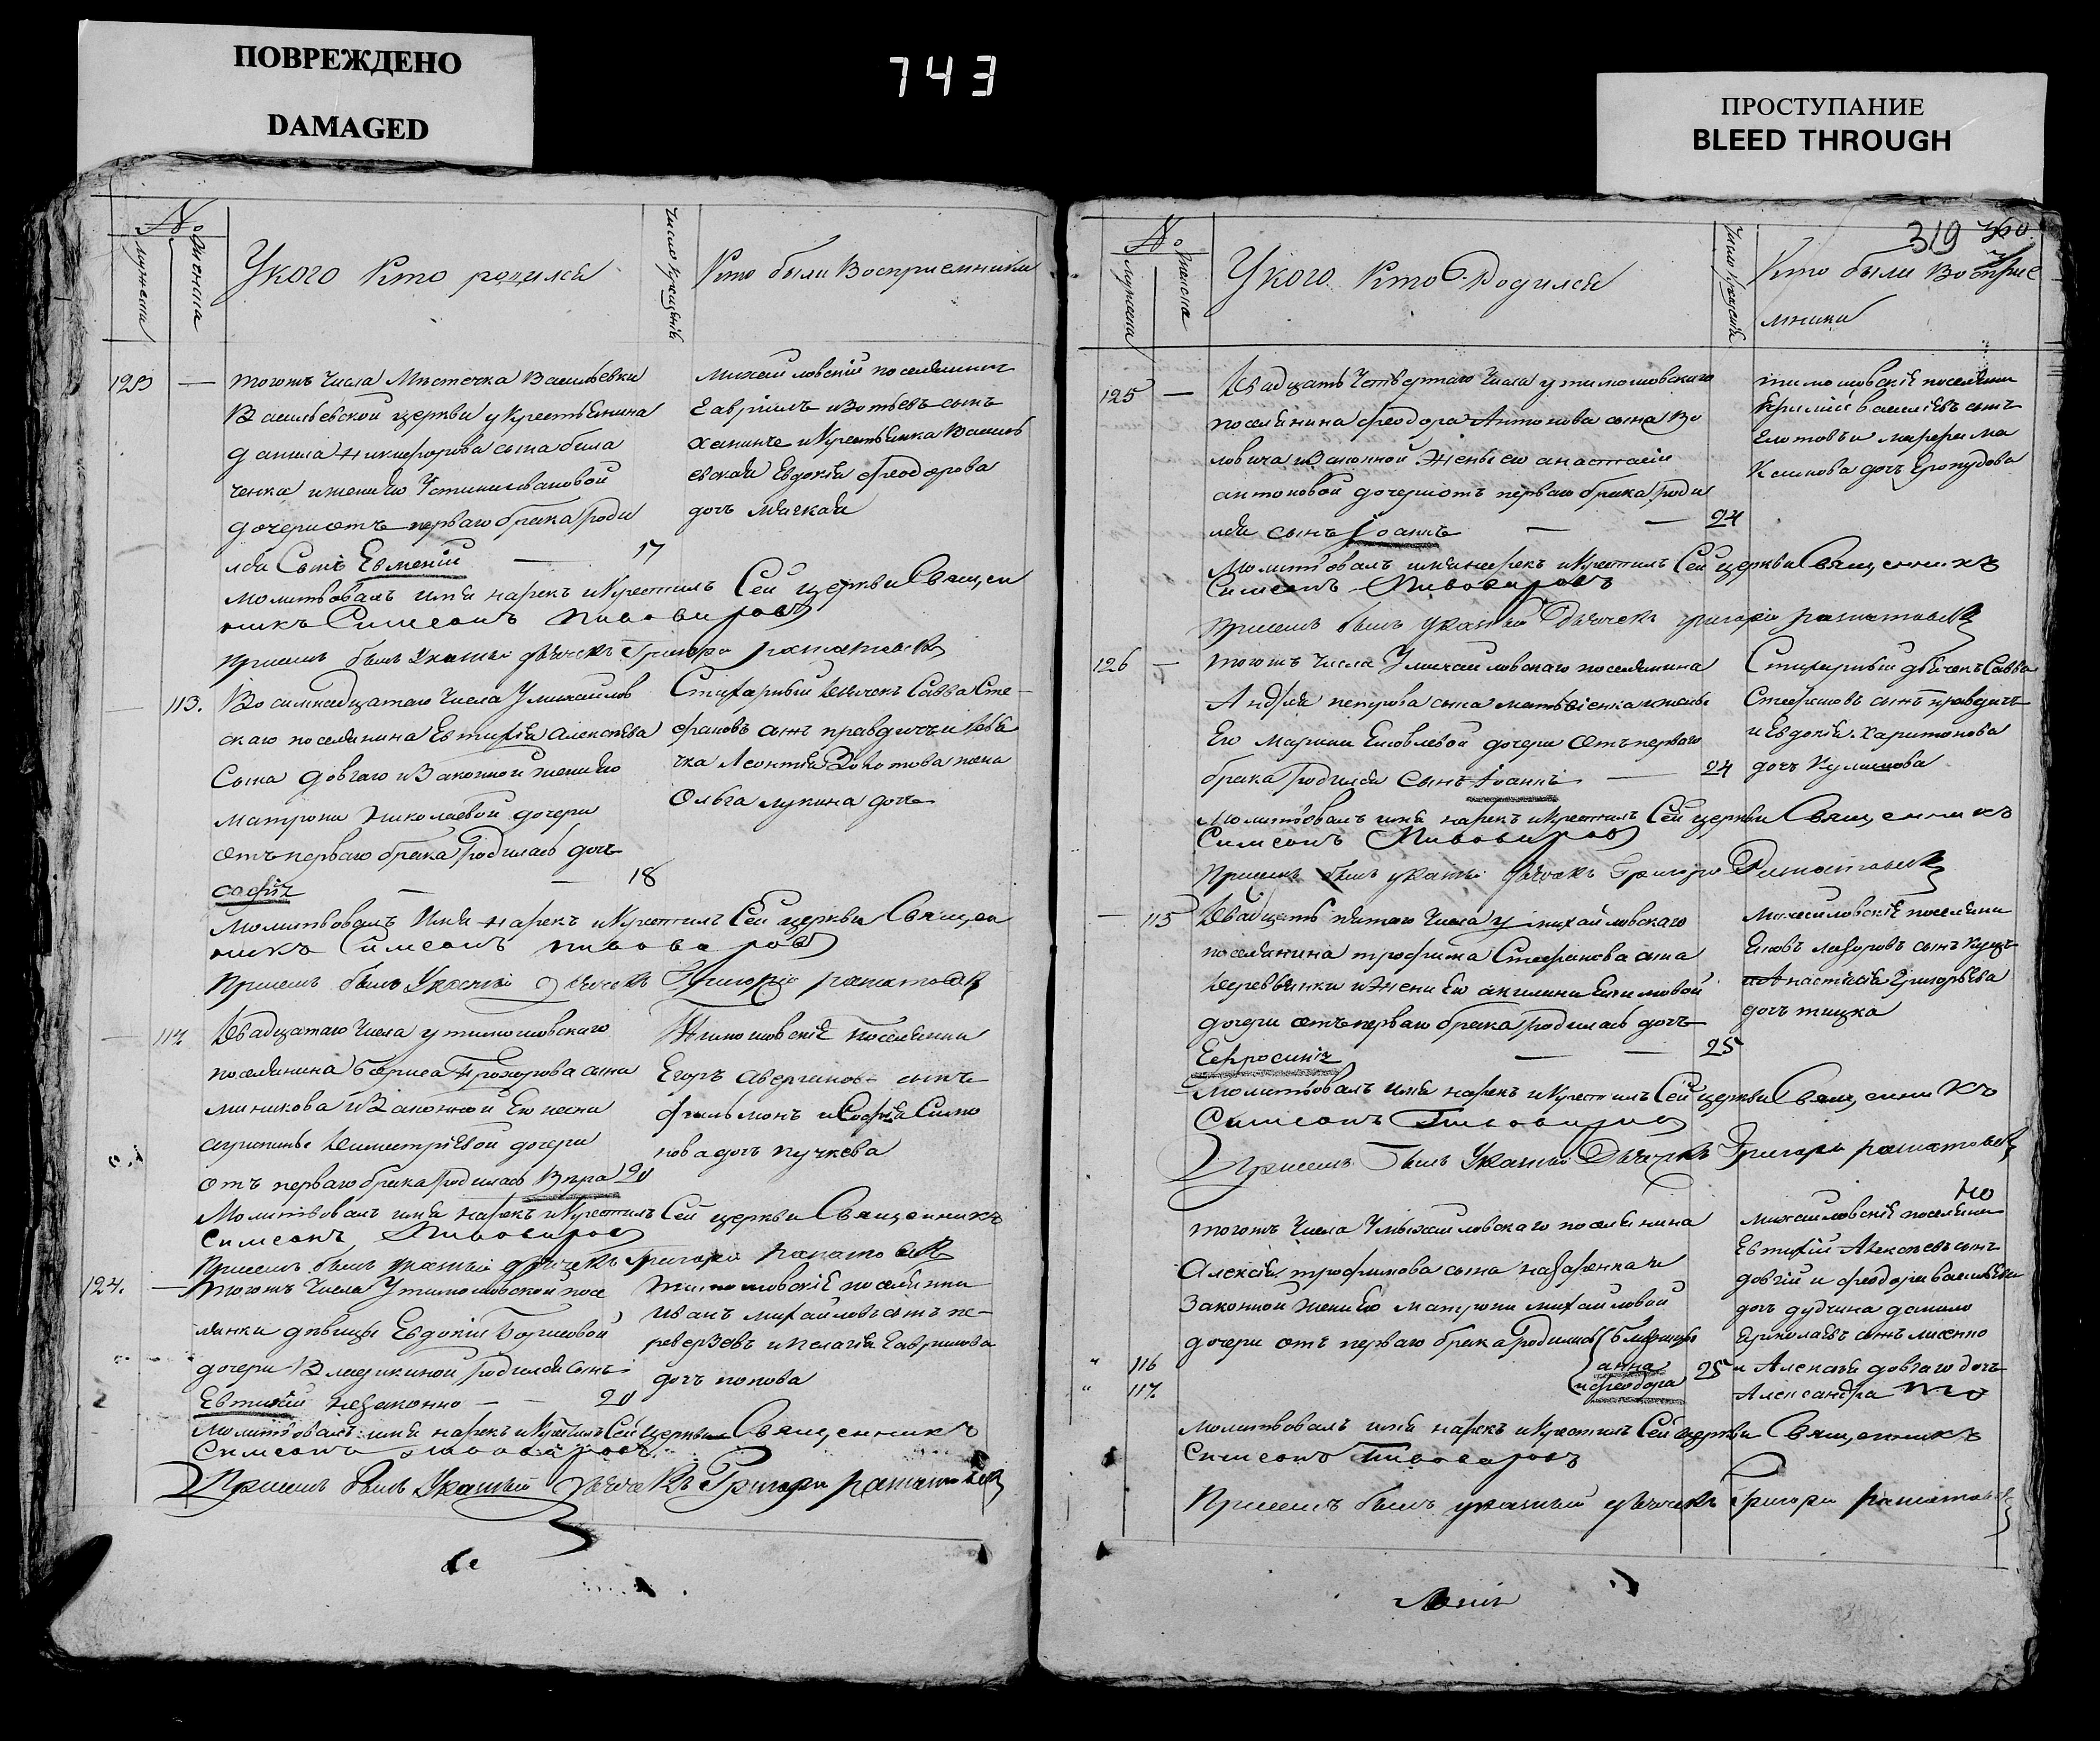 ПОВРЕЖДЕНО
DAMAGED
743
ПРОСТУПАНИЕ
BLEED THROUGH
№
мужеска
женска
У кого кто родился
число крещенія
Кто были Восприемники
123 —
тогожъ числа Местечка Васильевки
Васильевской церкви у крестьянина
данила никифорова сына била
ченка и жени его Устинии ивановой
дочери отъ перваго брака роди
лся Сынъ Евмений — 17
Михайловскій поселянинъ
Гавріилъ изотьевъ сынъ
ханинъ и крестьянка Василь
евская Евдокія феодорова
дочъ мягкая
молитвовалъ имя нарекъ и крестилъ Сей церкви Священ
никъ Симеонъ Пивоваровъ
присемъ былъ указный дьячекъ Григорій
— 113.
Восимнадцатаго числа У михайлов
скаго поселянина Евтихія алексеева
Сына довгаго и Законной жени его
матрони николаевой дочери
отъ перваго брака родилась дочъ
софія — — 18
Стихарный дьячекъ Савва Сте-
фановъ сынъ правдичъ и
чка Леонтія Золотова жена
Ольга лукина дочь
Молитвовалъ Имя нарекъ и крестилъ Сей церкви Священ
никъ Симеонъ пивоваровъ
присемъ былъ Указный дьячекъ Григорій
— 114
Двадцатаго числа у тимошовскаго
поселянина бориса прохорова сына
миникова и Законной его жени
агрипины димитріевой дочери
отъ перваго брака родилась Вера 20
Тимошовскіе поселянни
Егоръ аверьяновъ сынъ
фильмонъ и Софія Симо
нова дочъ пучкева
Молитвовалъ имя нарекъ и крестилъ Сей церкви Священникъ
Симеонъ Пивоваровъ
присемъ былъ указный дьячекъ григорій
124. —
тогожъ числа У тимошовской посе
лянки девицы Евдокіи борисовой
дочери Владикиной родился сынъ
Евтихій незаконно — — 20
тимошовскіе поселянни
иванъ михайловъ сынъ пе-
реверзевъ и пелагія гаврилова
дочъ попова
Молитвовалъ имя нарекъ и крестилъ Сей церкви Священникъ
Симеонъ пивоваровъ
Присемъ былъ Указный дьячекъ Григорій
319 360
№
мужеска
женска
У кого кто Родился
число крещенія
Кто были Воспріе
мники
125 —
Двадцать четвертаго числа у тимошовскаго
поселянина феодора Антонова сына Во
ловича и Законной жены его анастасіи
антоновой дочери отъ перваго брака роди
лся сынъ Іоаннъ — — 24
тимошовскіе поселяни
василіевъ сынъ
и марфа ма
ксимова дочъ
Молитвовалъ имя нарекъ и крестилъ Сей церкви Священникъ
Симеонъ Пивоваровъ
присемъ былъ указный дьячекъ григорій
126 —
тогожъ числа У михайловскаго поселянина
Андрея петрова сына матвіенка и жены
Его марины Яковлевой дочери отъ перваго
брака родился сынъ Іоаннъ — 24
Стихарный дьячекъ Савва
Стефановъ сынъ правдичъ
и Евдокія харитонова
дочъ Куликова
Молитвовалъ имя нарекъ и крестилъ Сей церкви Священникъ
Симеонъ Пивоваровъ
присемъ былъ указный дьячекъ Григорій
— 115
Двадцать пятаго числа у михайловскаго
поселянина трофима Стефанова сына
деревянки и жени его акилини Ефимовой
дочери отъ перваго брака родилась дочъ
Ефросинія — — 25
Михайловскіе поселяни
Яковъ лазоровъ сынъ
и Анастасія Григорьева
дочъ
Молитвовалъ имя нарекъ и крестилъ Сей церкви Священникъ
Симеонъ Пивоваровъ
Присемъ былъ Указный Дьячекъ Григорій
тогожъ числа У михайловскаго поселянина
Алексія трофимова сына назаренка и
Законной жени его матрони михайловой
дочери отъ перваго брака родились близници
116 анна 25
117 и феодора
Михайловскіе поселяни
Евтихій Алексеевъ сынъ
довгій и феодора василіева
дочъ дудчина данило
николаевъ сынъ
и Алексея довгаго дочъ
Александра
Молитвовалъ имя нарекъ и крестилъ Сей церкви Священникъ
Симеонъ Пивоваровъ
Присемъ былъ указный дьячекъ Григорій